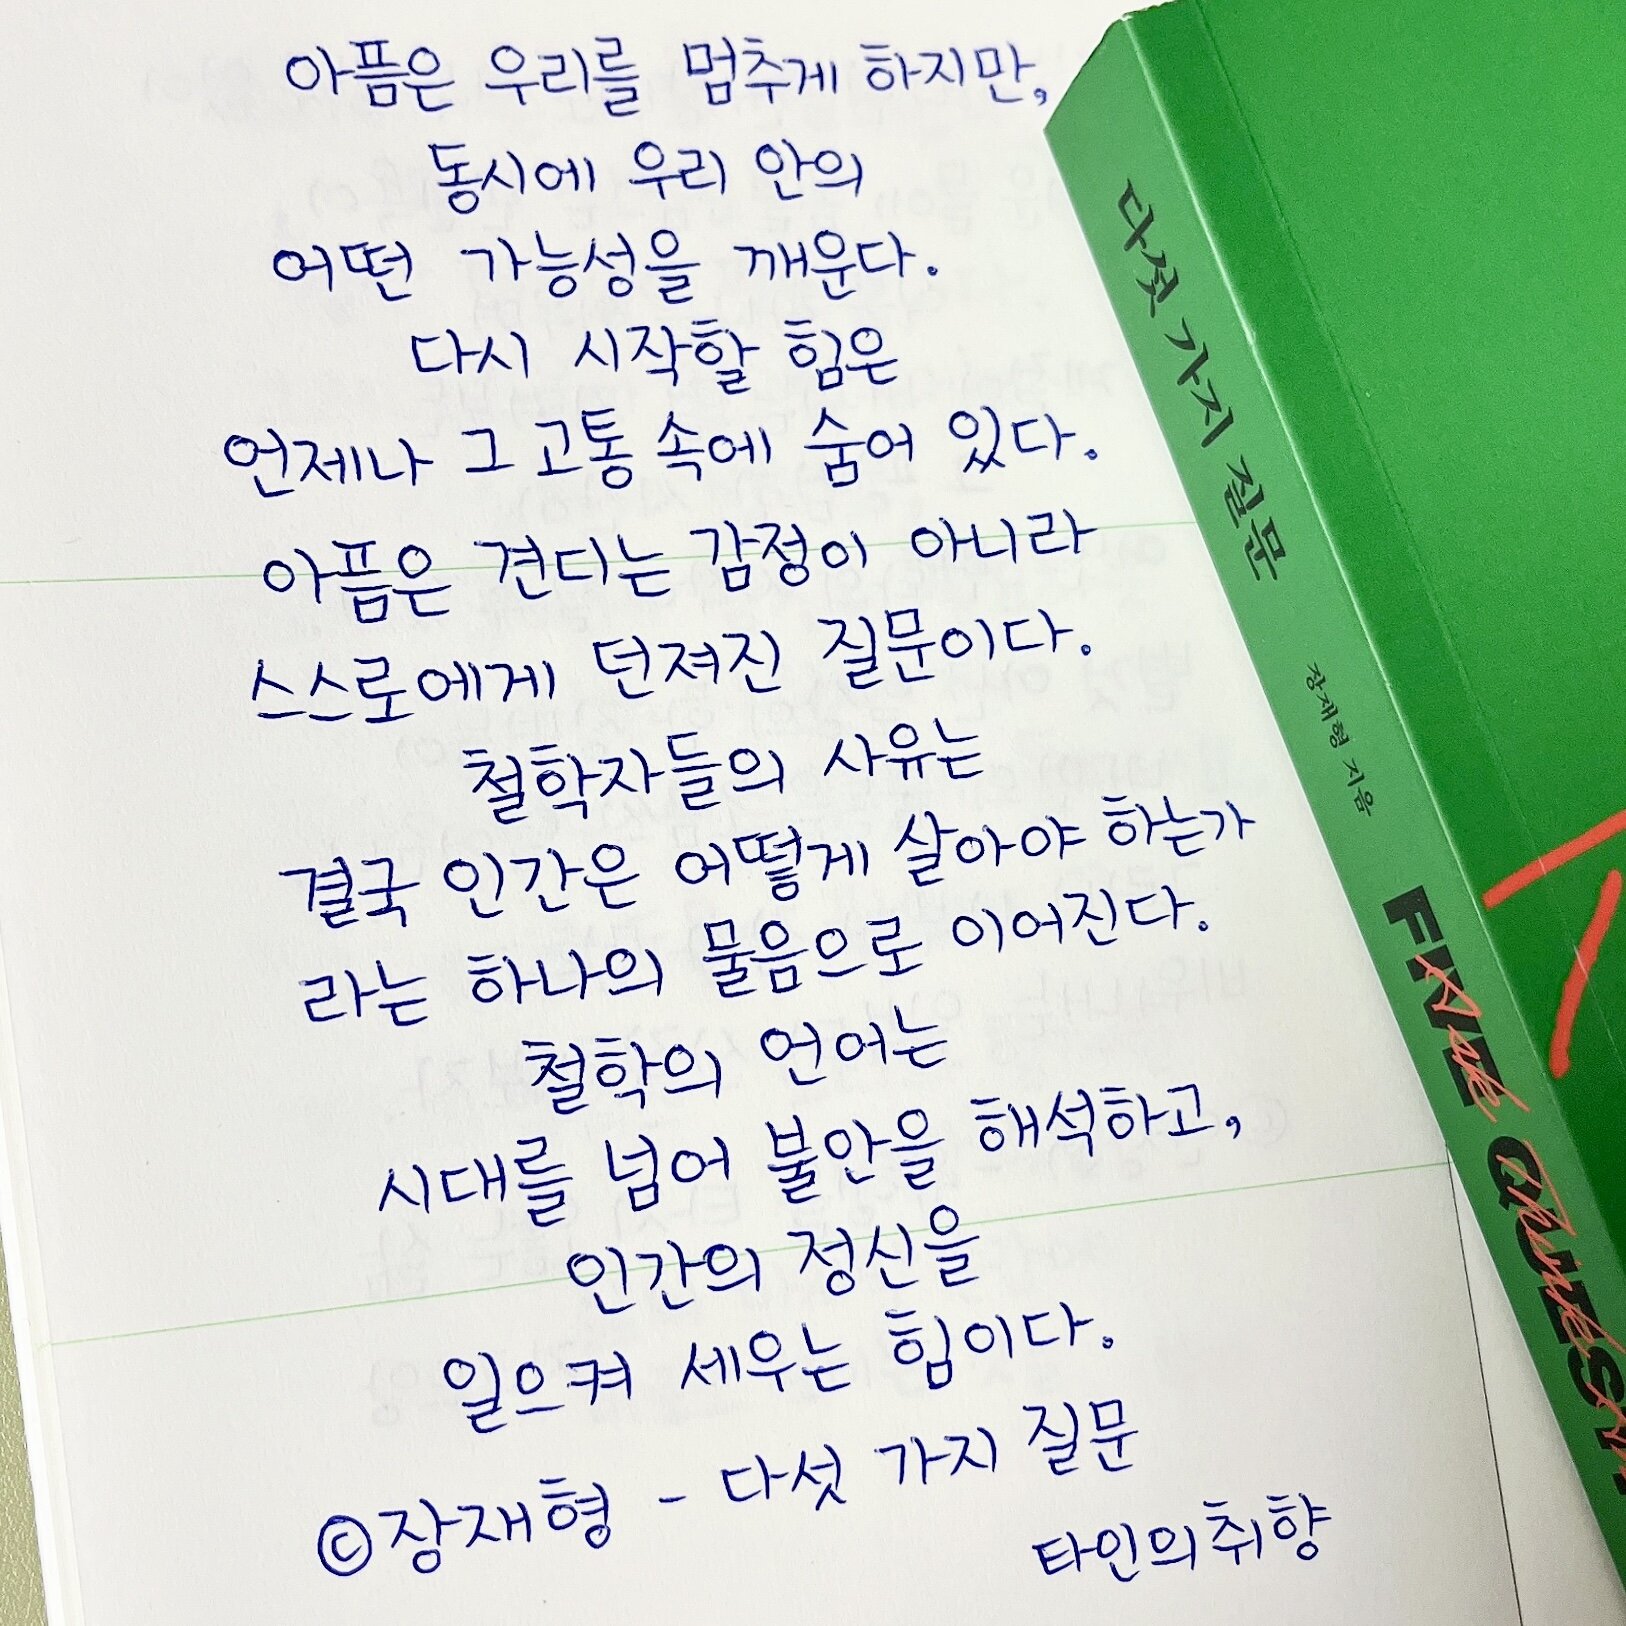 아픔은 우리를 멈추게 하지만,
동시에 우리 안의
어떤 가능성을 깨운다.
다시 시작할 힘은
언제나 그 고통 속에 숨어 있다.
아픔은 견디는 감정이 아니라
스스로에게 던져진 질문이다.
철학자들의 사유는
결국 인간은 어떻게 살아야 하는가
라는 하나의 물음으로 이어진다.
철학의 언어는
시대를 넘어 불안을 해석하고,
인간의 정신을
일으켜 세우는 힘이다.
©장재형 - 다섯 가지 질문
타인의취향
다섯 가지 질문
장재형 지음
FIVE QUEST